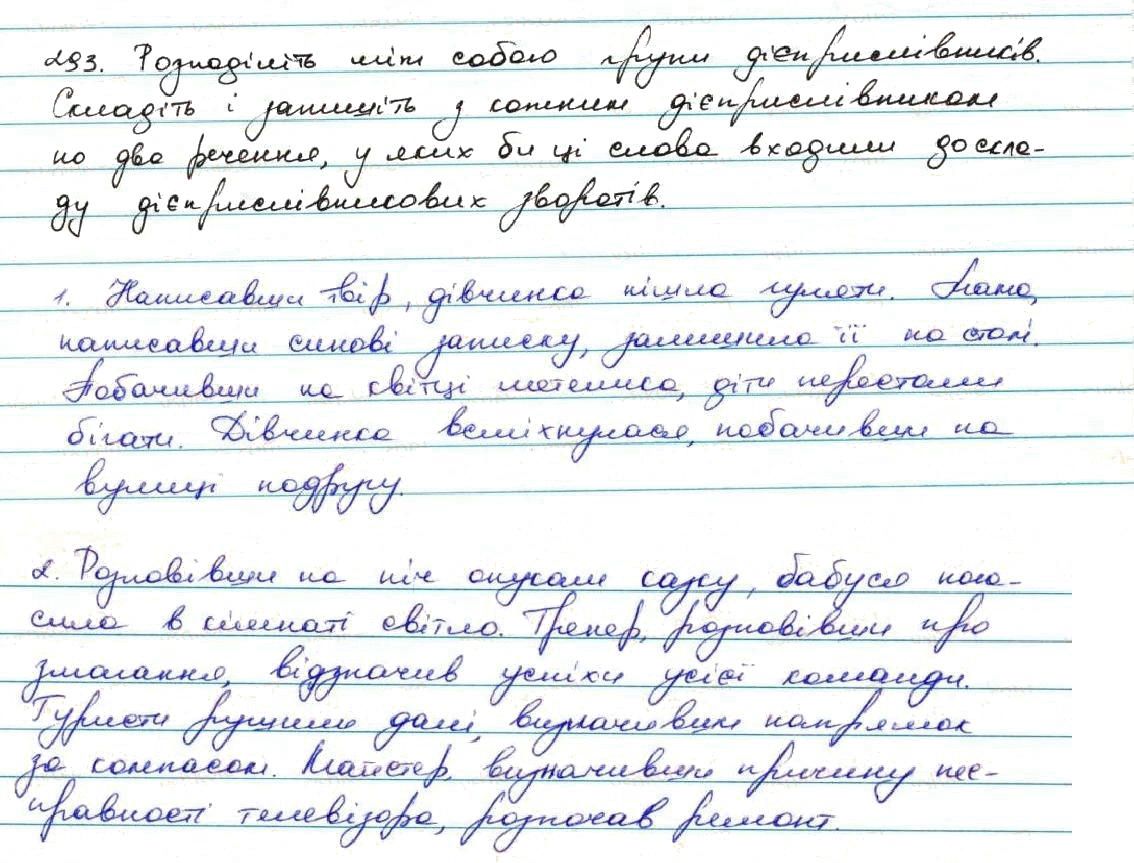 293. Розподіліть між собою групи дієприслівників.
Складіть і запишіть з кожним дієприслівником
по два речення, у яких би ці слова входили до скла-
ду дієприслівникових зворотів.
1. Написавши твір, дівчинка пішла гуляти. Мама,
написавши синові записку, залишила її на столі.
Побачивши на квітці метелика, діти перестали
бігати. Дівчинка всміхнулася, побачивши на
вулиці подругу.
2. Розповівши на ніч онукам казку, бабуся пога-
сила в кімнаті світло. Тренер, розповівши про
змагання, відзначив успіхи усієї команди.
Туристи рушили далі, визначивши напрямок
за компасом. Майстер, визначивши причину нес-
правності телевізора, розпочав ремонт.